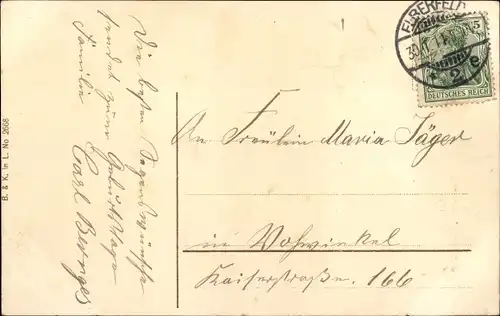 Die besten Segenswünsche
sendet zum Geburtstage
Familie Carl Berges
B. & K. in L. No 2668
ELBERFELD
5
DEUTSCHES REICH
An Fräulein Maria Jäger
in Vohwinkel
Kaiserstraße. 166